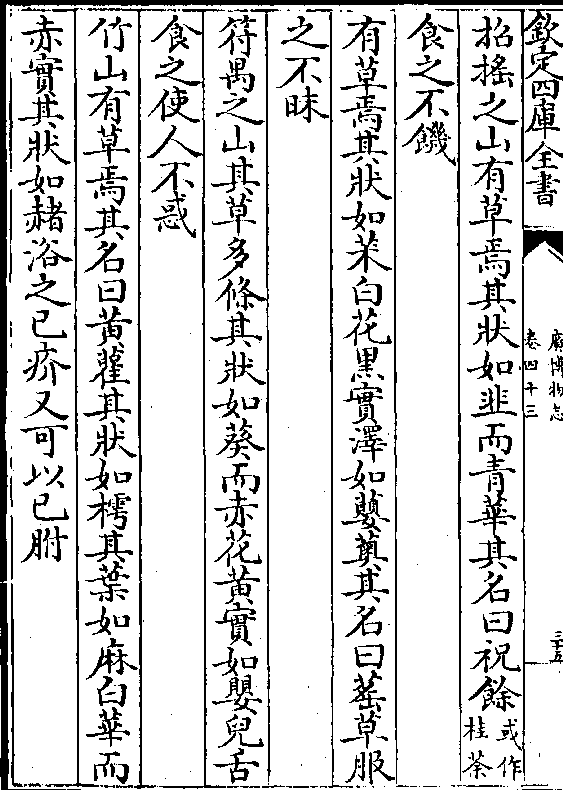 欽定四庫全書
廣博物志
卷四十三
三五
招搖之山有草焉其狀如韭而青華其名曰祝餘或作
桂荼
食之不饑
有草焉其狀如茱白花黑實澤如蘡薁其名曰䔄草服
之不昧
符禺之山其草多條其狀如葵而赤花黃實如嬰兒舌
食之使人不惑
竹山有草焉其名曰黃雚其狀如樗其葉如麻白華而
赤實其狀如赭浴之已疥又可以已胕